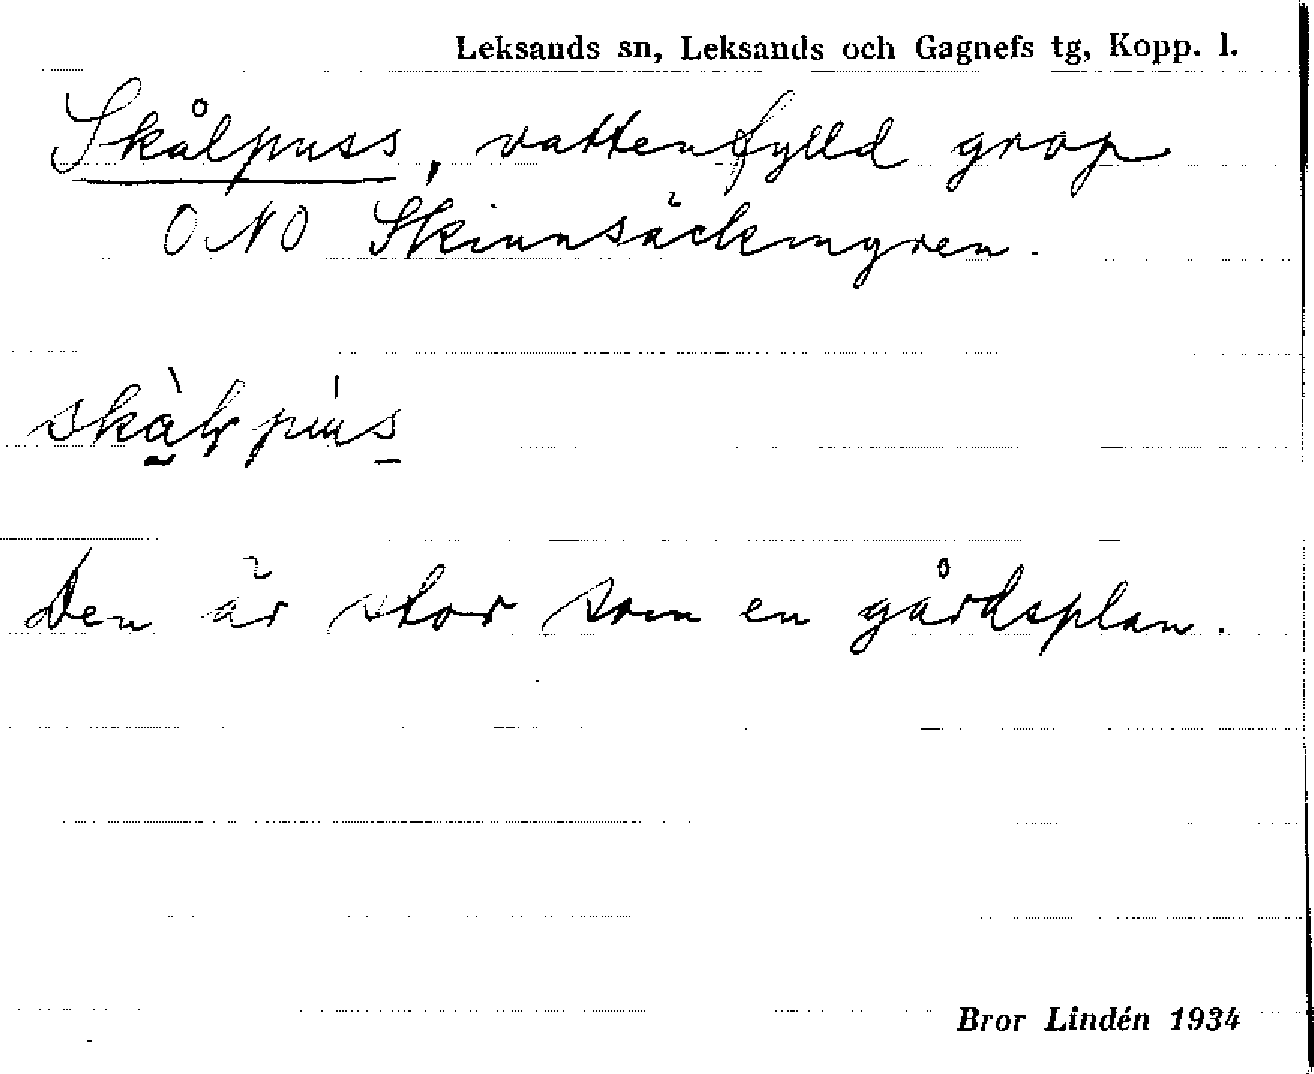 Leksands sn, Leksands och Gagnefs tg, Kopp. l.
Skålpuss, vattenfylld grop
ONO Skinnsäckmyren.
Den är stor som en gårdsplan.
Bror Lindén 1934